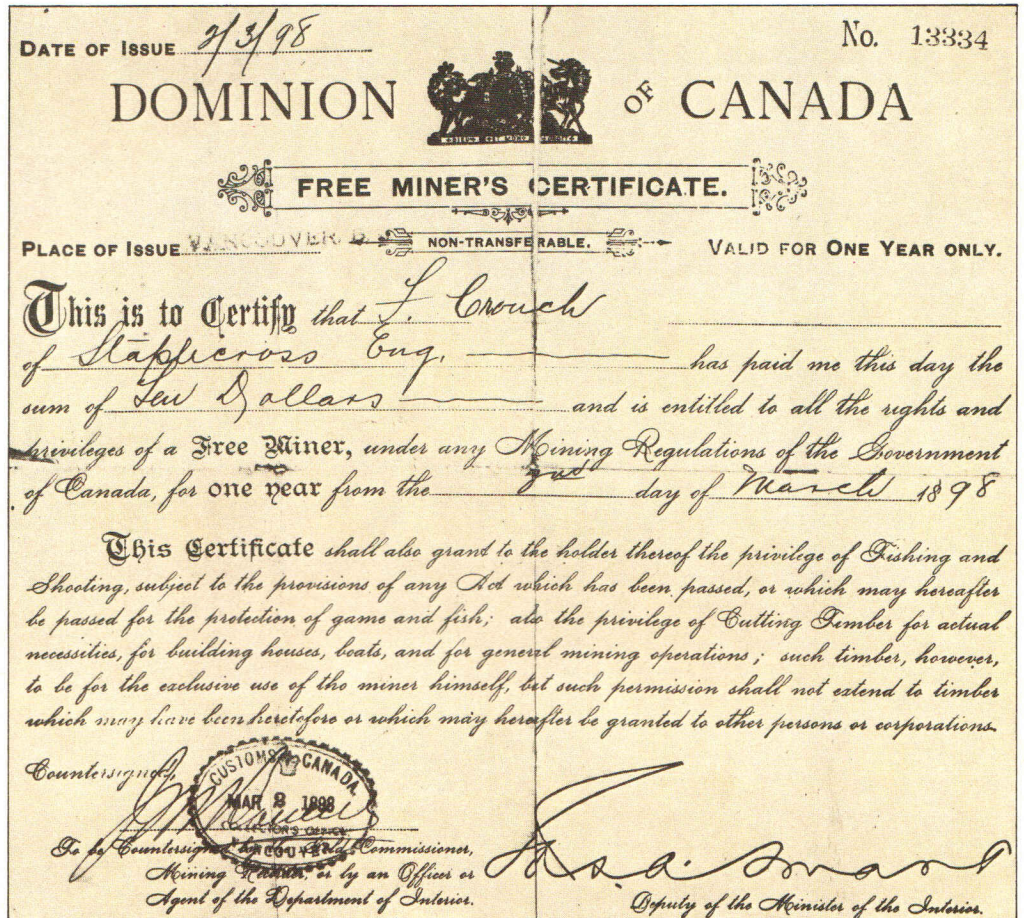 DATE OF ISSUE 2/3/98
No. 13334
DOMINION OF CANADA
FREE MINER'S CERTIFICATE.
PLACE OF ISSUE VANCOUVER, B.
NON-TRANSFERABLE.
VALID FOR ONE YEAR ONLY.
This is to Certify that F. Crouch
of Staplecross Eng. has paid me this day the
sum of Ten Dollars and is entitled to all the rights and
privileges of a Free Miner, under any Mining Regulations of the Government
of Canada, for one year from the 2nd day of March 1898
This Certificate shall also grant to the holder thereof the privilege of Fishing and
Shooting, subject to the provisions of any Act which has been passed, or which may hereafter
be passed for the protection of game and fish; also the privilege of Cutting Timber for actual
necessities, for building houses, boats, and for general mining operations; such timber, however,
to be for the exclusive use of the miner himself, but such permission shall not extend to timber
which may have been heretofore or which may hereafter be granted to other persons or corporations.
Countersigned,
CUSTOMS CANADA.
MAR 2 1898
COLLECTOR'S OFFICE
VANCOUVER
To be Countersigned by the Commissioner,
Mining or by an Officer or
Agent of the Department of Interior.
Jas. A. Smart
Deputy of the Minister of the Interior.